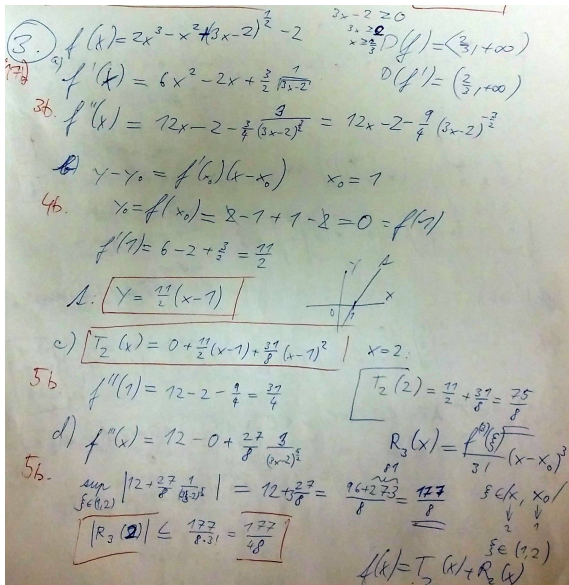 3x-2 ≥ 0
3x ≥ 2
x ≥ 2/3
3. a) f(x) = 2x³ - x² + (3x-2)^(1/2) - 2
D(f) = <2/3, +∞)
f'(x) = 6x² - 2x + 3/2 · 1/√(3x-2)
D(f') = (2/3, +∞)
3b. f''(x) = 12x - 2 - 3/4 · 3/(3x-2)^(3/2) = 12x - 2 - 9/4 (3x-2)^(-3/2)
b) y - y₀ = f'(x₀)(x - x₀) x₀ = 1
4b. y₀ = f(x₀) = 2 - 1 + 1 - 2 = 0 = f(1)
f'(1) = 6 - 2 + 3/2 = 11/2
t: y = 11/2 (x-1)
y
t
x
0
1
c) T₂(x) = 0 + 11/2 (x-1) + 31/8 (x-1)² x = 2:
5b f''(1) = 12 - 2 - 9/4 = 31/4
T₂(2) = 11/2 + 31/8 = 75/8
d) f'''(x) = 12 - 0 + 27/8 · 3/(3x-2)^(5/2)
R₃(x) = f⁽³⁾(ξ)/3! (x - x₀)³
5b. sup ξ∈(1,2) |12 + 27/8 · 1/(3ξ-2)^(5/2)| = 12 + 3·27/8 = 96 + 27·3/8 = 177/8
81
ξ ∈ /x, x₀/
2 1
|R₃(2)| ≤ 177/8·3! = 177/48
ξ ∈ (1,2)
f(x) = T₂(x) + R₃(x)